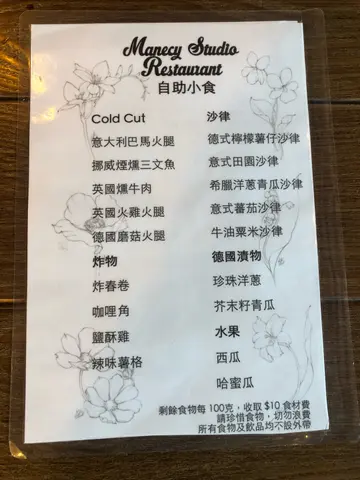 Manecy Studio
Restaurant
自助小食
Cold Cut
意大利巴馬火腿
挪威煙燻三文魚
英國燻牛肉
英國火雞火腿
德國蘑菇火腿
炸物
炸春卷
咖哩角
鹽酥雞
辣味薯格
沙律
德式檸檬薯仔沙律
意式田園沙律
希臘洋蔥青瓜沙律
意式蕃茄沙律
牛油粟米沙律
德國漬物
珍珠洋蔥
芥末籽青瓜
水果
西瓜
哈蜜瓜
剩餘食物每 100克，收取 $10 食材費
請珍惜食物，切勿浪費
所有食物及飲品均不設外帶